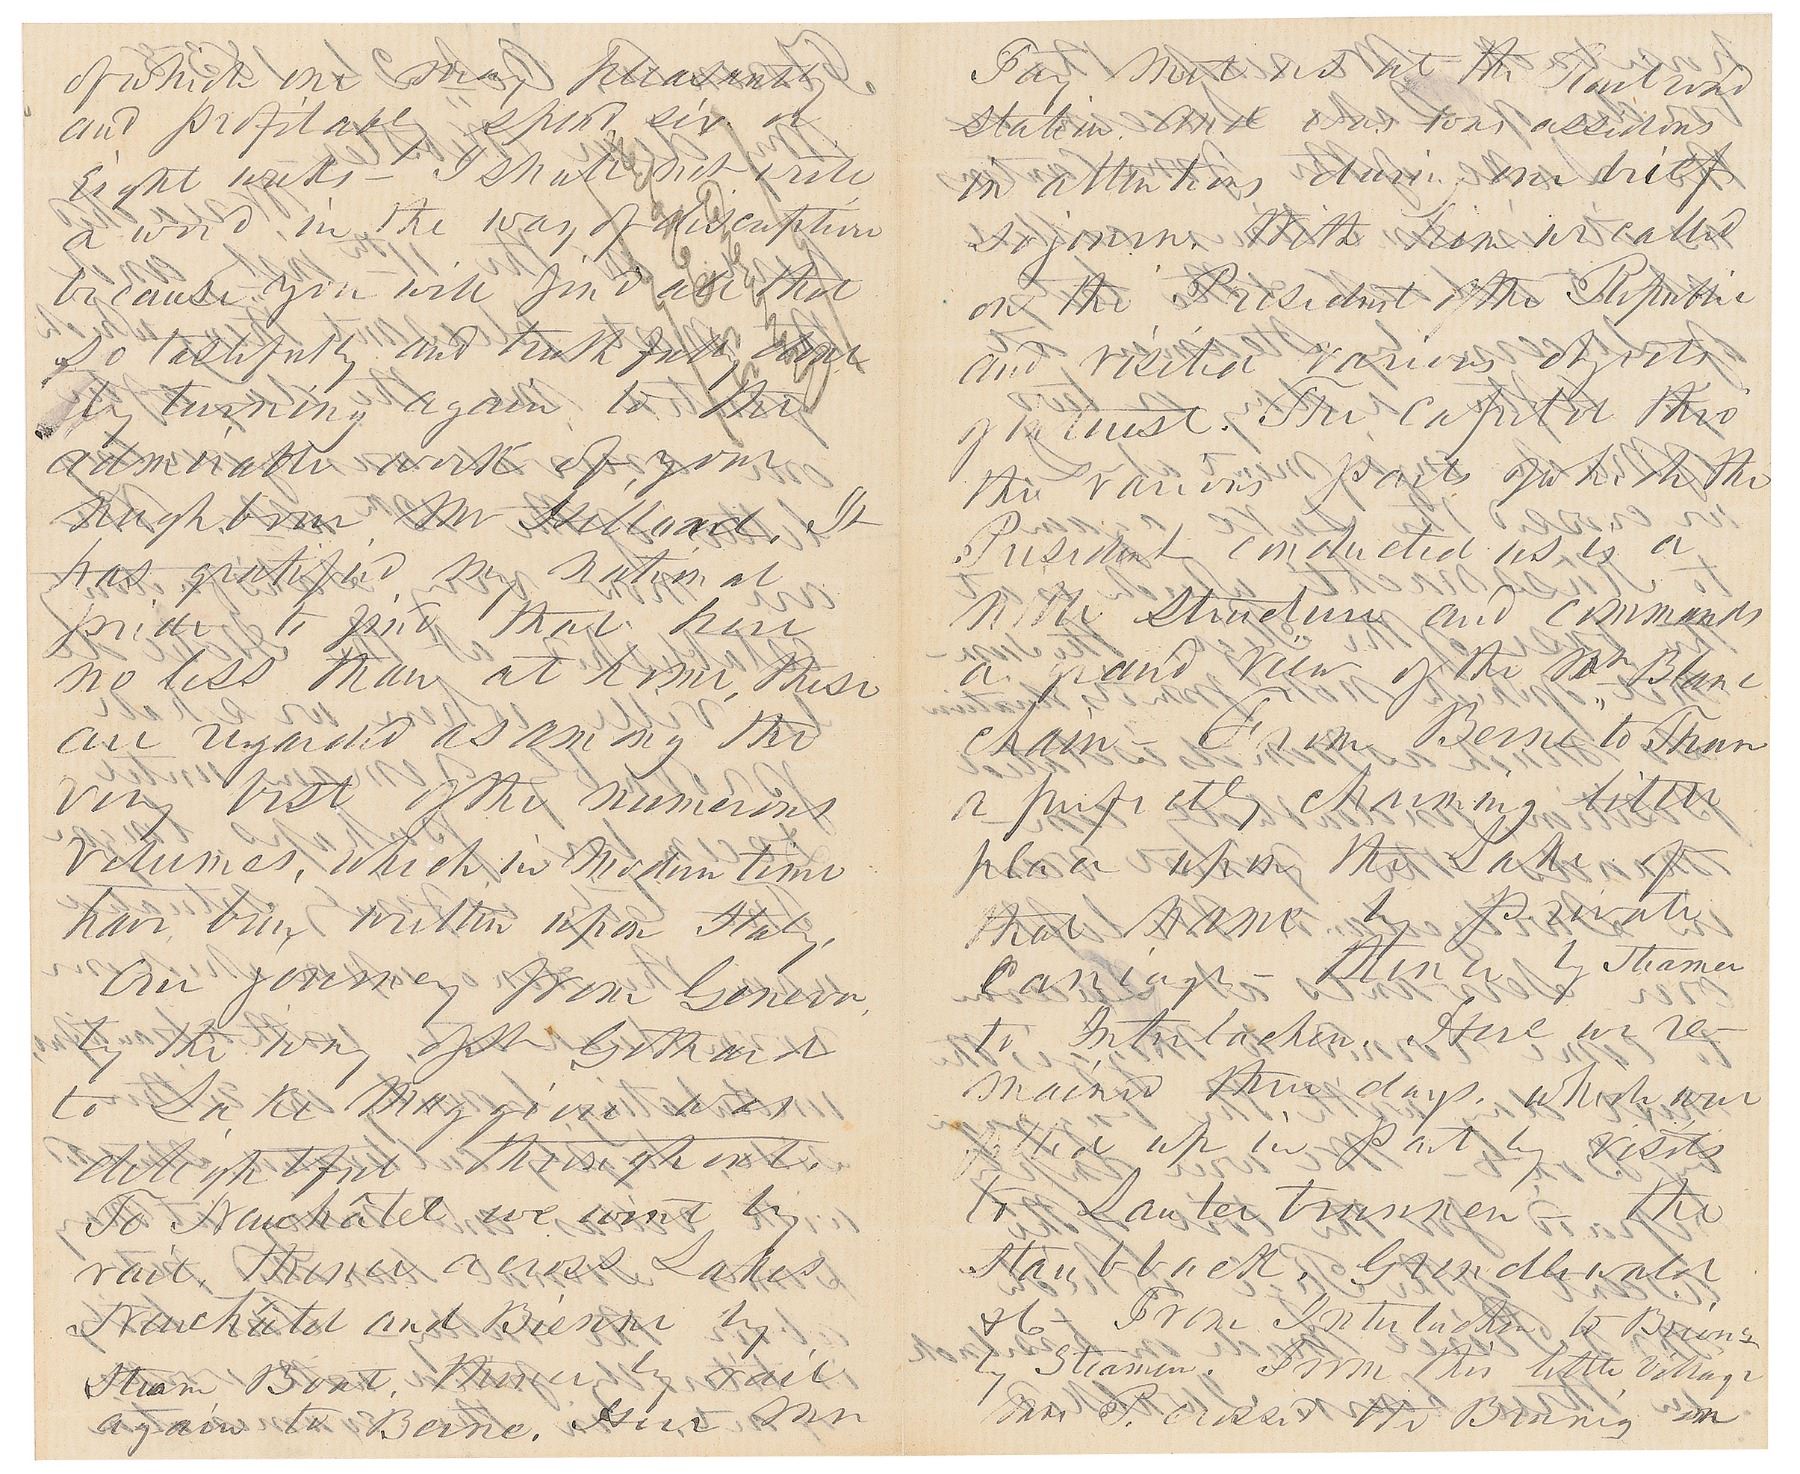 of which one may pleasantly
and profitably spend six or
Eight weeks – I shall not write
a word in the way of discription
because you will find all that
so tastefully and truthfully done
by turning again to the
admirable work of your
neighbour Mr Hilland. It
has gratified my national
pride to find that here
no less than at home, these
are regarded as among the
very best of the numerous
volumes, which in modern time
have been written upon Italy.
Our journey from Geneva,
by the way of St Gothard
to Lake Maggiore was
delightful throughout.
To Neuchâtel we went by
rail, thence across Lakes
Neuchâtel and Bienne by
Steam Boat, thence by rail
again to Berne. Here Mr
Fay met us at the Rail road
station and was tous assidious
in attentions during our brief
sojourn. With him we called
on the President of the Republic
and visited various objects
of interest. The Capitol thro
the various parts of which the
President conducted us is a
noble structure and commands
a grand view of the Mn Blanc
chain – From Berne to Thun
a perfectly charming little
place upon the Lake of
that name by private
Carriage – thence by Steamer
to Interlachen. Here we re-
mained three days. which were
filled up in part by visits
to Lauterbrunnen – the
Staubback, Grindlewald
&c – From Interlachen to Brienz
by Steamer. From this little village
Mrs P. crossed the Brunig in